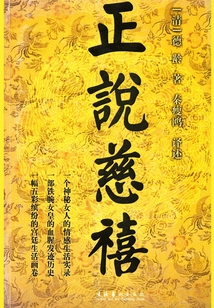 [清]德 龄 著
秦瘦鸥 译述
正說慈禧
一个神秘女人的情感生活实录
一部铁腕女皇的血腥发迹历史
一幅五彩缤纷的宫廷生活画卷